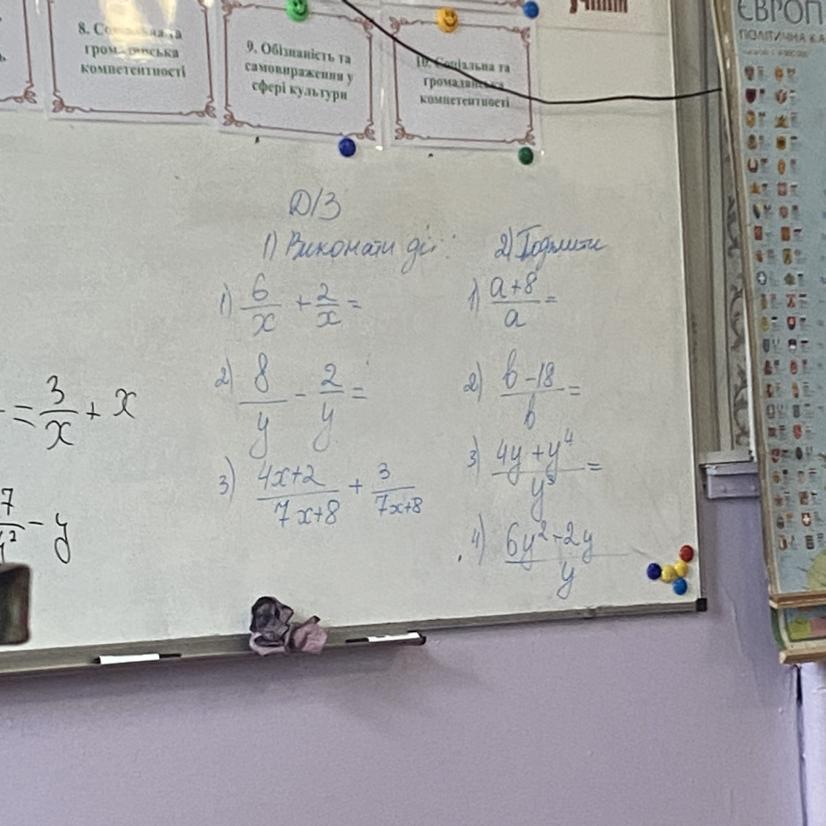 8. Соціальна та
громадянська
компетентності
9. Обізнаність та
самовираження у
сфері культури
10. Соціальна та
громадянська
компетентності
ЄВРОП
ПОЛІТИЧНА КА
Д/З
1) Виконати дії:
1) 6/x + 2/x =
2) 8/y - 2/y =
3) (4x+2)/(7x+8) + 3/(7x+8)
2)
1) (a+8)/a =
2) (b-18)/b =
3) (4y+y⁴)/y³ =
4) (6y²-2y)/y
= 3/x + x
- y